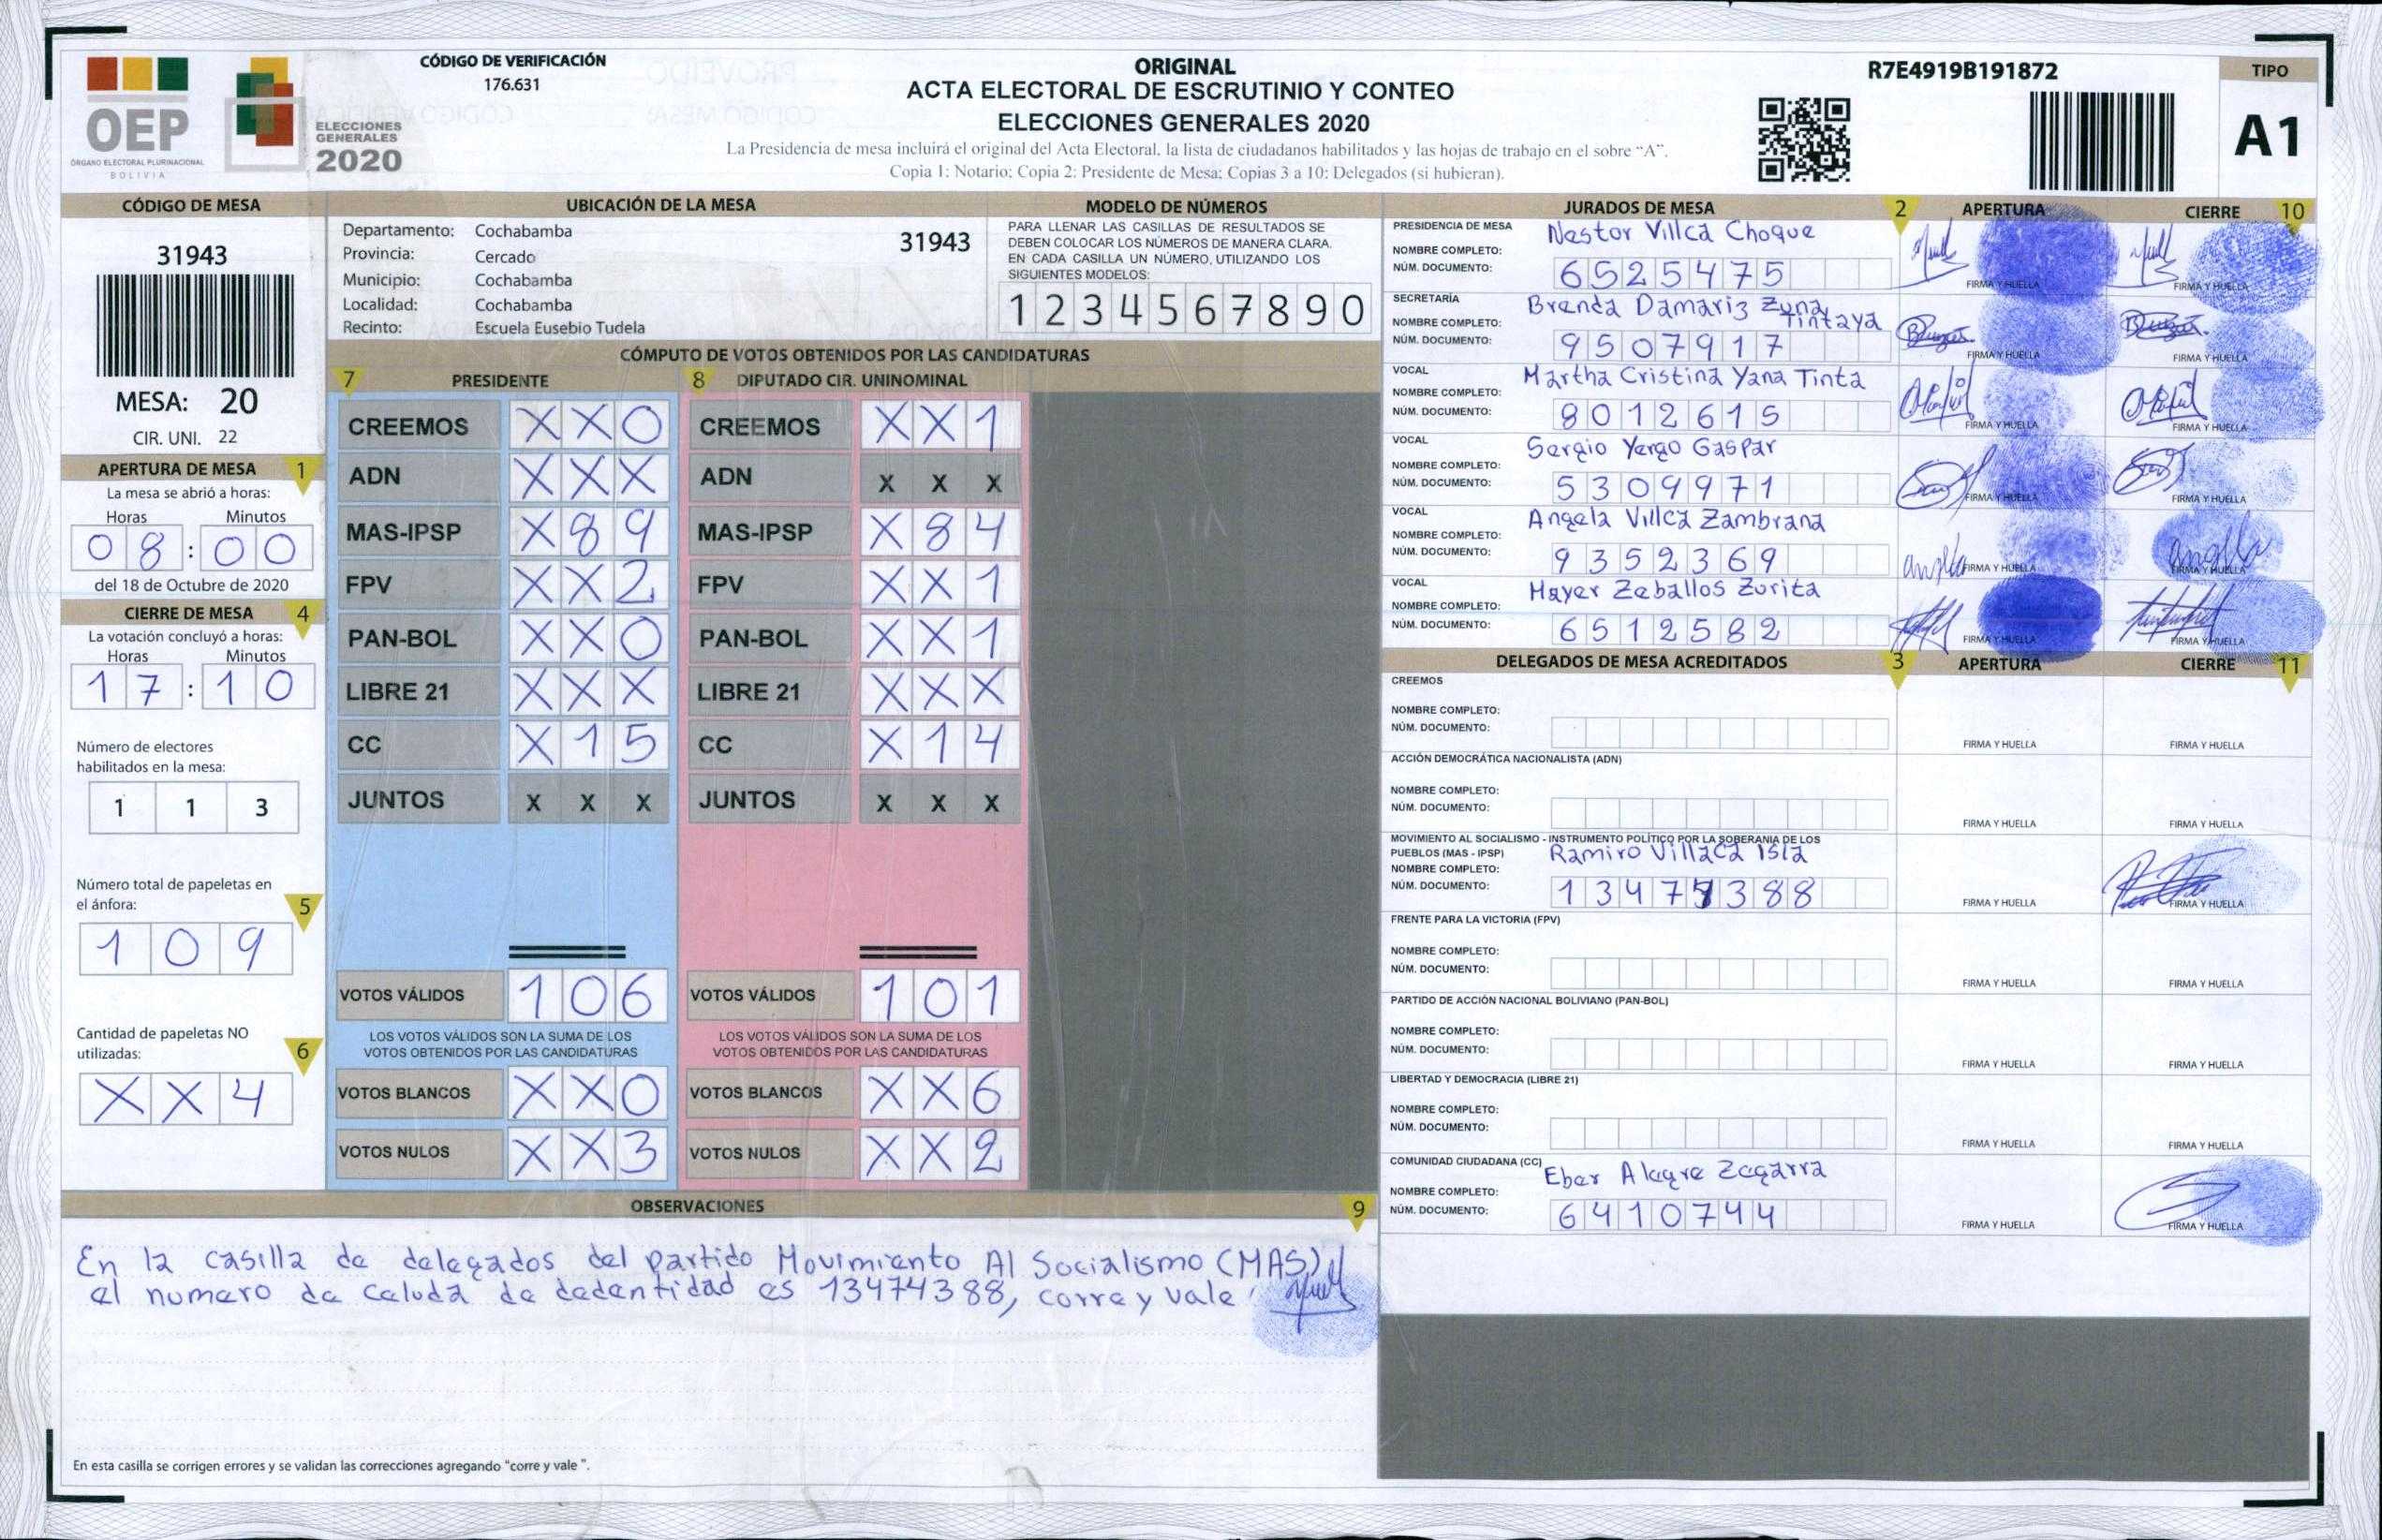 OEP
ÓRGANO ELECTORAL PLURINACIONAL
BOLIVIA
ELECCIONES
GENERALES
2020
CÓDIGO DE VERIFICACIÓN
176.631
ORIGINAL
ACTA ELECTORAL DE ESCRUTINIO Y CONTEO
ELECCIONES GENERALES 2020
La Presidencia de mesa incluirá el original del Acta Electoral, la lista de ciudadanos habilitados y las hojas de trabajo en el sobre “A”.
Copia 1: Notario; Copia 2: Presidente de Mesa; Copias 3 a 10: Delegados (si hubieran).
R7E4919B191872
TIPO
A1
CÓDIGO DE MESA
31943
MESA: 20
CIR. UNI. 22
APERTURA DE MESA 1
La mesa se abrió a horas:
Horas Minutos
08:00
del 18 de Octubre de 2020
CIERRE DE MESA 4
La votación concluyó a horas:
Horas Minutos
17:10
Número de electores
habilitados en la mesa:
1 1 3
Número total de papeletas en
el ánfora: 5
1 0 9
Cantidad de papeletas NO
utilizadas: 6
X X 4
UBICACIÓN DE LA MESA
Departamento: Cochabamba 31943
Provincia: Cercado
Municipio: Cochabamba
Localidad: Cochabamba
Recinto: Escuela Eusebio Tudela
MODELO DE NÚMEROS
PARA LLENAR LAS CASILLAS DE RESULTADOS SE
DEBEN COLOCAR LOS NÚMEROS DE MANERA CLARA.
EN CADA CASILLA UN NÚMERO, UTILIZANDO LOS
SIGUIENTES MODELOS:
1 2 3 4 5 6 7 8 9 0
CÓMPUTO DE VOTOS OBTENIDOS POR LAS CANDIDATURAS
7 PRESIDENTE 8 DIPUTADO CIR. UNINOMINAL
CREEMOS X X 0 CREEMOS X X 1
ADN X X X ADN X X X
MAS-IPSP X 8 9 MAS-IPSP X 8 4
FPV X X 2 FPV X X 1
PAN-BOL X X 0 PAN-BOL X X 1
LIBRE 21 X X X LIBRE 21 X X X
CC X 1 5 CC X 1 4
JUNTOS X X X JUNTOS X X X
VOTOS VÁLIDOS 1 0 6 VOTOS VÁLIDOS 1 0 1
LOS VOTOS VÁLIDOS SON LA SUMA DE LOS LOS VOTOS VÁLIDOS SON LA SUMA DE LOS
VOTOS OBTENIDOS POR LAS CANDIDATURAS VOTOS OBTENIDOS POR LAS CANDIDATURAS
VOTOS BLANCOS X X 0 VOTOS BLANCOS X X 6
VOTOS NULOS X X 3 VOTOS NULOS X X 2
JURADOS DE MESA 2 APERTURA CIERRE 10
PRESIDENCIA DE MESA
NOMBRE COMPLETO: Nestor Villca Choque
NÚM. DOCUMENTO: 6525475 FIRMA Y HUELLA FIRMA Y HUELLA
SECRETARÍA
NOMBRE COMPLETO: Brenda Damariz Zuna Tintaya
NÚM. DOCUMENTO: 9507917 FIRMA Y HUELLA FIRMA Y HUELLA
VOCAL
NOMBRE COMPLETO: Martha Cristina Yana Tinta
NÚM. DOCUMENTO: 8012615 FIRMA Y HUELLA FIRMA Y HUELLA
VOCAL
NOMBRE COMPLETO: Sergio Yergo Gaspar
NÚM. DOCUMENTO: 5309971 FIRMA Y HUELLA FIRMA Y HUELLA
VOCAL
NOMBRE COMPLETO: Angela Villca Zambrana
NÚM. DOCUMENTO: 9352369 FIRMA Y HUELLA FIRMA Y HUELLA
VOCAL
NOMBRE COMPLETO: Mayer Zeballos Zurita
NÚM. DOCUMENTO: 6512582 FIRMA Y HUELLA FIRMA Y HUELLA
DELEGADOS DE MESA ACREDITADOS 3 APERTURA CIERRE 11
CREEMOS
NOMBRE COMPLETO:
NÚM. DOCUMENTO: FIRMA Y HUELLA FIRMA Y HUELLA
ACCIÓN DEMOCRÁTICA NACIONALISTA (ADN)
NOMBRE COMPLETO:
NÚM. DOCUMENTO: FIRMA Y HUELLA FIRMA Y HUELLA
MOVIMIENTO AL SOCIALISMO - INSTRUMENTO POLÍTICO POR LA SOBERANIA DE LOS
PUEBLOS (MAS - IPSP) Ramiro Villaca Isla
NOMBRE COMPLETO:
NÚM. DOCUMENTO: 1347 388 FIRMA Y HUELLA FIRMA Y HUELLA
FRENTE PARA LA VICTORIA (FPV)
NOMBRE COMPLETO:
NÚM. DOCUMENTO: FIRMA Y HUELLA FIRMA Y HUELLA
PARTIDO DE ACCIÓN NACIONAL BOLIVIANO (PAN-BOL)
NOMBRE COMPLETO:
NÚM. DOCUMENTO: FIRMA Y HUELLA FIRMA Y HUELLA
LIBERTAD Y DEMOCRACIA (LIBRE 21)
NOMBRE COMPLETO:
NÚM. DOCUMENTO: FIRMA Y HUELLA FIRMA Y HUELLA
COMUNIDAD CIUDADANA (CC) Eber Alegre Zegarra
NOMBRE COMPLETO:
NÚM. DOCUMENTO: 6410744 FIRMA Y HUELLA FIRMA Y HUELLA
OBSERVACIONES 9
En la casilla de delegados del partido Movimiento Al Socialismo (MAS)
el numero de celuda de dedentidad es 13474388, corre y vale
En esta casilla se corrigen errores y se validan las correcciones agregando “corre y vale ”.